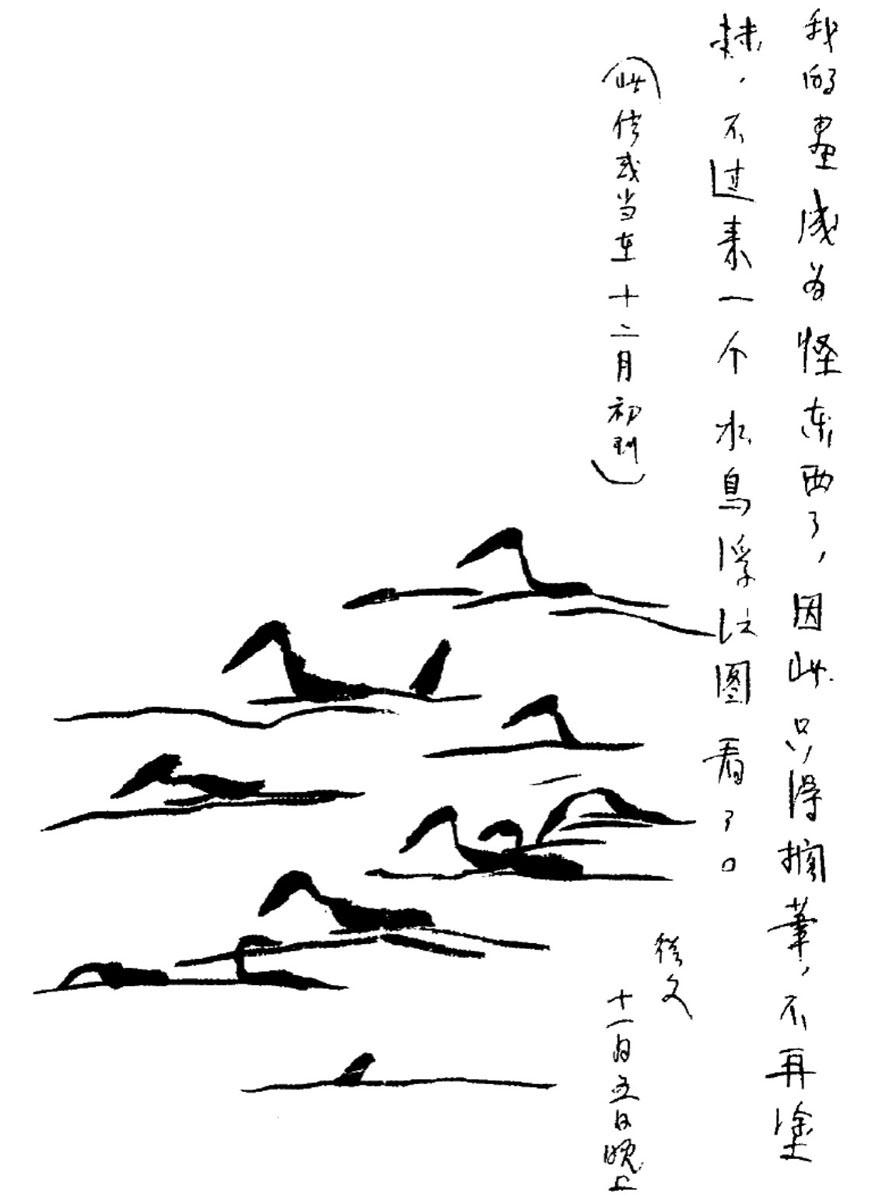 我的畫成为怪东西了，因此只得搁筆，不再塗
抹，不过来一个水鳥浮图看了。
（此信或当在十二月初到）
從文
十一月五日晚上